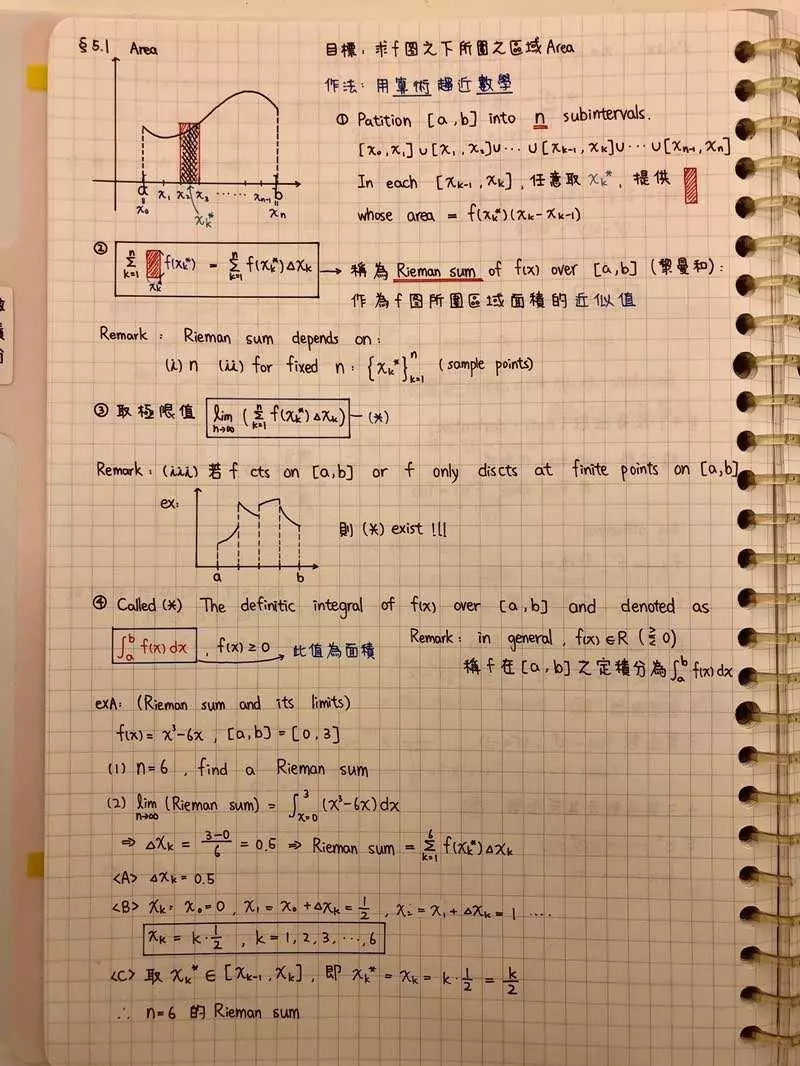 §5.1 Area
目標：求f图之下所圍之區域Area
作法：用算術趨近數學
① Patition [a,b] into n subintervals.
[x₀,x₁]∪[x₁,x₂]∪⋯∪[xₖ₋₁,xₖ]∪⋯∪[xₙ₋₁,xₙ]
In each [xₖ₋₁,xₖ], 任意取 xₖ*, 提供
whose area = f(xₖ*)(xₖ-xₖ₋₁)
a b
x₀ x₁ x₂ x₃ ⋯⋯ xₙ₋₁ xₙ
xₖ*
② Σₖ₌₁ⁿ f(xₖ*) = Σₖ₌₁ⁿ f(xₖ*)Δxₖ → 稱為 Rieman sum of f(x) over [a,b] (黎曼和):
xₖ*
作為f图所圍區域面積的近似值
Remark : Rieman sum depends on :
(i) n (ii) for fixed n : {xₖ*}ₖ₌₁ⁿ (sample points)
③ 取極限值 lim n→∞ (Σₖ₌₁ⁿ f(xₖ*)Δxₖ) — (*)
Remark : (iii) 若 f cts on [a,b] or f only discts at finite points on [a,b]
ex:
則 (*) exist !!!
a b
④ Called (*) The definitic integral of f(x) over [a,b] and denoted as
∫ₐᵇ f(x)dx , f(x)≥0 → 此值為面積
Remark : in general , f(x)∈R (⪌0)
稱f在[a,b]之定積分為∫ₐᵇ f(x)dx
exA: (Rieman sum and its limits)
f(x)= x³-6x , [a,b] = [0,3]
(1) n=6 , find a Rieman sum
(2) lim n→∞ (Rieman sum) = ∫ₓ₌₀³ (x³-6x)dx
⇒ Δxₖ = (3-0)/6 = 0.5 ⇒ Rieman sum = Σₖ₌₁⁶ f(xₖ*)Δxₖ
<A> Δxₖ = 0.5
<B> xₖ : x₀=0 , x₁ = x₀+Δxₖ = 1/2 , x₂ = x₁+Δxₖ = 1 ⋯⋅
xₖ = k·1/2 , k=1,2,3,⋯,6
<C> 取 xₖ* ∈ [xₖ₋₁,xₖ] , 即 xₖ* = xₖ = k·1/2 = k/2
∴ n=6 的 Rieman sum